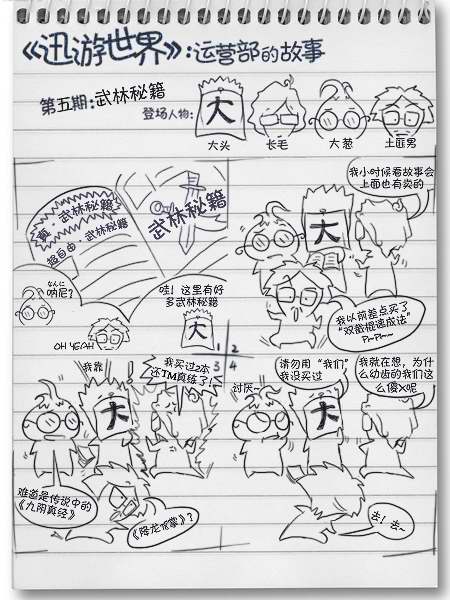 《迅游世界》:运营部的故事
第五期:武林秘籍
登场人物:
大
大头
长毛
大葱
土匪男
真
武林秘籍
超自由
武林秘籍
武林秘籍
なんに
呐尼?
OH YEAH
哇!这里有好
多武林秘籍
大
1 2
3 4
我小时候看故事会
上面也有卖的
大
我以前差点买了
“双截棍速成法”
Pi~Pi~~
我靠
我买过2本
还TM真练了!
大
难道是传说中的
《九阴真经》
《降龙十八掌》?
讨厌~
请勿用“我们”
我没买过
我就在想,为什
么幼齿的我们这
么傻X呢
大
去!去~